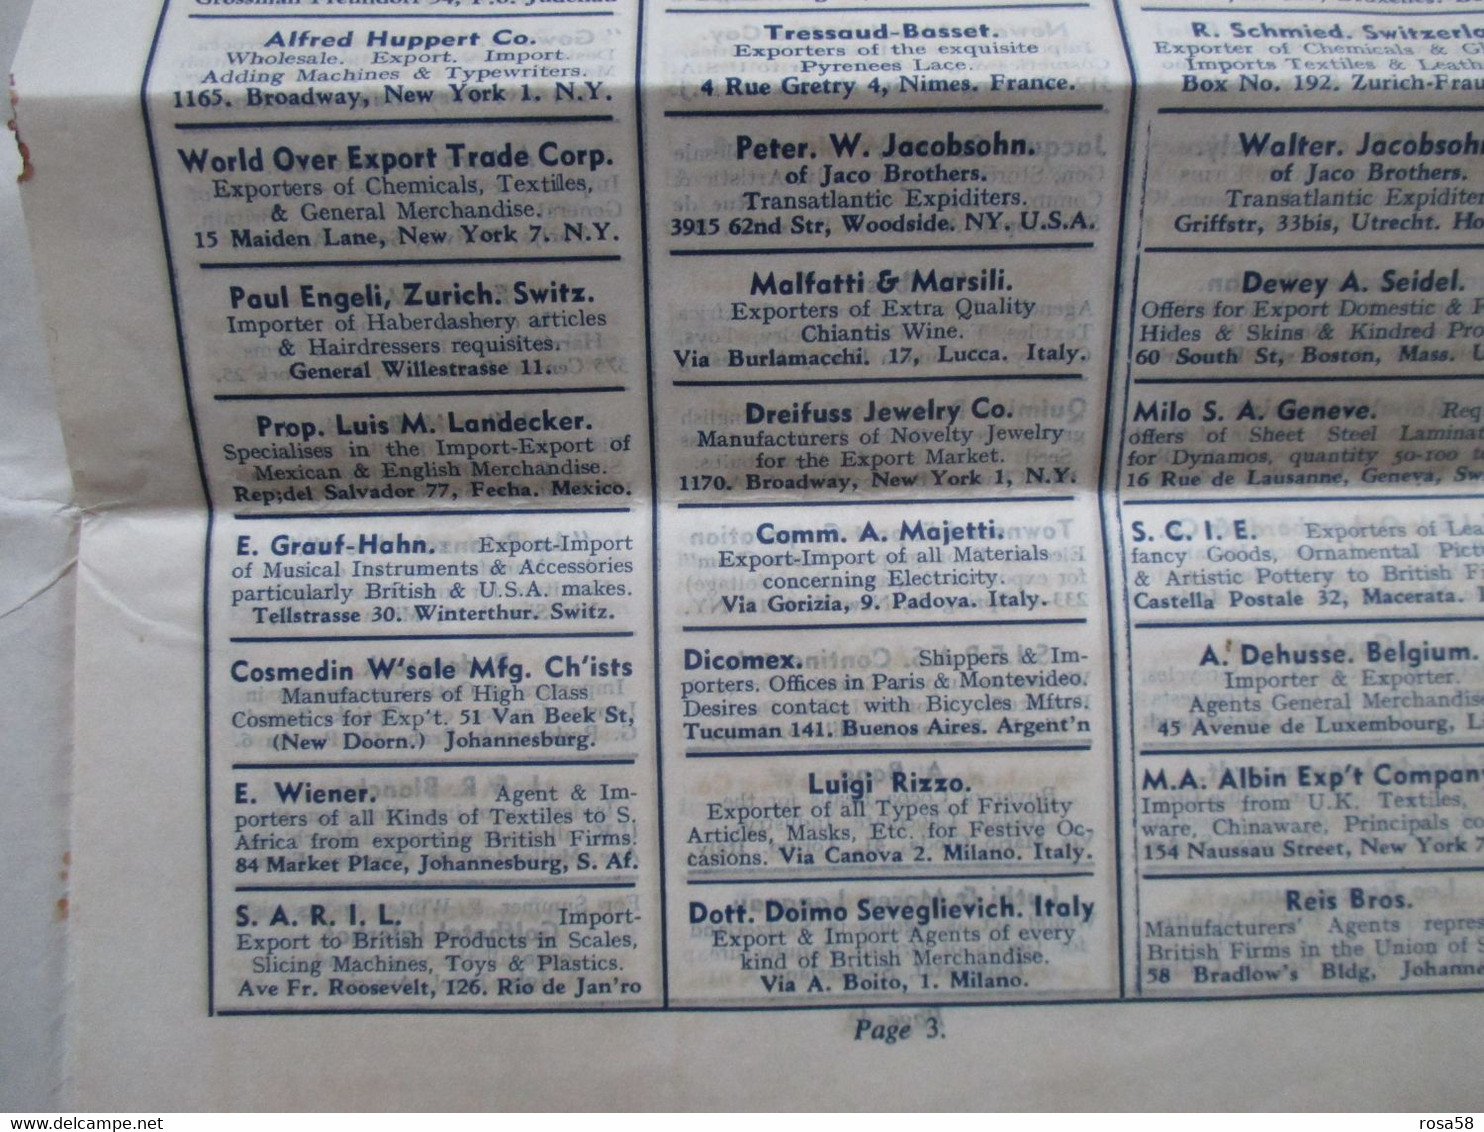 Alfred Huppert Co.
Wholesale. Export. Import.
Adding Machines & Typewriters.
1165. Broadway, New York 1. N.Y.
World Over Export Trade Corp.
Exporters of Chemicals, Textiles,
& General Merchandise.
15 Maiden Lane, New York 7. N.Y.
Paul Engeli, Zurich. Switz.
Importer of Haberdashery articles
& Hairdressers requisites.
General Willestrasse 11.
Prop. Luis M. Landecker.
Specialises in the Import-Export of
Mexican & English Merchandise.
Rep;del Salvador 77, Fecha. Mexico.
E. Grauf-Hahn. Export-Import
of Musical Instruments & Accessories
particularly British & U.S.A. makes.
Tellstrasse 30. Winterthur. Switz.
Cosmedin W'sale Mfg. Ch'ists
Manufacturers of High Class
Cosmetics for Exp't. 51 Van Beek St,
(New Doorn.) Johannesburg.
E. Wiener. Agent & Im-
porters of all Kinds of Textiles to S.
Africa from exporting British Firms.
84 Market Place, Johannesburg, S. Af.
S. A. R. I. L. Import-
Export to British Products in Scales,
Slicing Machines, Toys & Plastics.
Ave Fr. Roosevelt, 126. Rio de Jan'ro
Tressaud-Basset.
Exporters of the exquisite
Pyrenees Lace.
4 Rue Gretry 4, Nimes. France.
Peter. W. Jacobsohn.
of Jaco Brothers.
Transatlantic Expiditers.
3915 62nd Str, Woodside. NY. U.S.A.
Malfatti & Marsili.
Exporters of Extra Quality
Chiantis Wine.
Via Burlamacchi. 17, Lucca. Italy.
Dreifuss Jewelry Co.
Manufacturers of Novelty Jewelry
for the Export Market.
1170. Broadway, New York 1, N.Y.
Comm. A. Majetti.
Export-Import of all Materials
concerning Electricity.
Via Gorizia, 9. Padova. Italy.
Dicomex. Shippers & Im-
porters. Offices in Paris & Montevideo.
Desires contact with Bicycles Mftrs.
Tucuman 141. Buenos Aires. Argent'n
Luigi Rizzo.
Exporter of all Types of Frivolity
Articles, Masks, Etc. for Festive Oc-
casions. Via Canova 2. Milano. Italy.
Dott. Doimo Seveglievich. Italy
Export & Import Agents of every
kind of British Merchandise.
Via A. Boito, 1. Milano.
R. Schmied. Switzerla
Exporter of Chemicals & G
Imports Textiles & Leath
Box No. 192. Zurich-Frau
Walter. Jacobsohn
of Jaco Brothers.
Transatlantic Expiditer
Griffstr, 33bis, Utrecht. Ho
Dewey A. Seidel.
Offers for Export Domestic & F
Hides & Skins & Kindred Pro
60 South St, Boston, Mass. U
Milo S. A. Geneve. Req
offers of Sheet Steel Laminat
for Dynamos, quantity 50-100 to
16 Rue de Lausanne, Geneva, Sw
S. C. I. E. Exporters of Lea
fancy Goods, Ornamental Pict
& Artistic Pottery to British Fi
Castella Postale 32, Macerata.
A. Dehusse. Belgium.
Importer & Exporter.
Agents General Merchandis
45 Avenue de Luxembourg, L
M.A. Albin Exp't Compan
Imports from U.K. Textiles,
ware, Chinaware, Principals co
154 Naussau Street, New York 7
Reis Bros.
Manufacturers' Agents repres
British Firms in the Union of
58 Bradlow's Bldg, Johann
Page 3.
rosa58